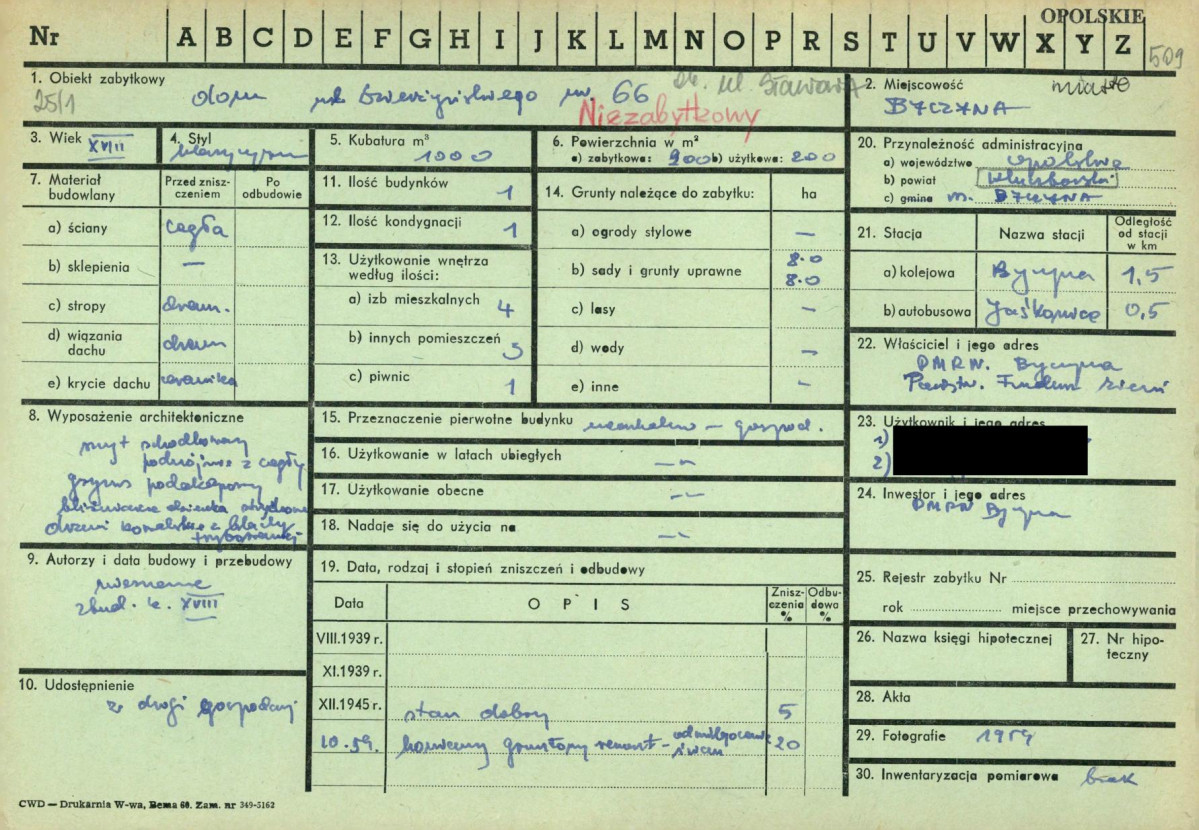 OPOLSKIE
Nr A B C D E F G H I J K L M N O P R S T U V W X Y Z
509
1. Obiekt zabytkowy
25/1
dom ul. nr. 66
ul. Sława
Niezabytkowy
2. Miejscowość
miasto
BYCZYNA
3. Wiek
XVIII
4. Styl
klasycyzm
5. Kubatura m³
1000
6. Powierzchnia w m²
a) zabytkowa: 900 b) użytkowa: 200
20. Przynależność administracyjna
a) województwo opolskie
b) powiat kluczborski
c) gmina m. BYCZYNA
7. Materiał budowlany
Przed zniszczeniem
Po odbudowie
a) ściany cegła
b) sklepienia —
c) stropy drewn.
d) wiązania dachu drewn
e) krycie dachu ceramika
11. Ilość budynków 1
12. Ilość kondygnacji 1
13. Użytkowanie wnętrza według ilości:
a) izb mieszkalnych 4
b) innych pomieszczeń 3
c) piwnic 1
14. Grunty należące do zabytku: ha
a) ogrody stylowe —
b) sady i grunty uprawne 8.0
8.0
c) lasy —
d) wody —
e) inne -
21. Stacja
Nazwa stacji
Odległość od stacji w km
a) kolejowa Byczyna 1,5
b) autobusowa Jaśkowice 0,5
22. Właściciel i jego adres
PMRN. Byczyna
Państw. Fundusz Ziemi
8. Wyposażenie architektoniczne
szczyt schodkowy
podwójnie z cegły
gzyms podokapowy
drzwi kowalskie z blachy
15. Przeznaczenie pierwotne budynku mieszkalno - gospod.
16. Użytkowanie w latach ubiegłych —"—
17. Użytkowanie obecne —"—
18. Nadaje się do użycia na —"—
23. Użytkownik i jego adres
1)
2)
24. Inwestor i jego adres
PMRN Byczyna
9. Autorzy i data budowy i przebudowy
nieznane
zbud. w. XVIII
10. Udostępnienie
z drogi gospodarczej
19. Data, rodzaj i stopień zniszczeń i odbudowy
Data
OPIS
Zniszczenia %
Odbudowa %
VIII.1939 r.
XI.1939 r.
XII.1945 r. stan dobry 5
10.59. konieczny gruntowny remont - odwilgocenie ścian 20
25. Rejestr zabytku Nr
rok miejsce przechowywania
26. Nazwa księgi hipotecznej
27. Nr hipoteczny
28. Akta
29. Fotografie 1959
30. Inwentaryzacja pomiarowa brak
CWD — Drukarnia W-wa, Bema 60. Zam. nr 349-5162